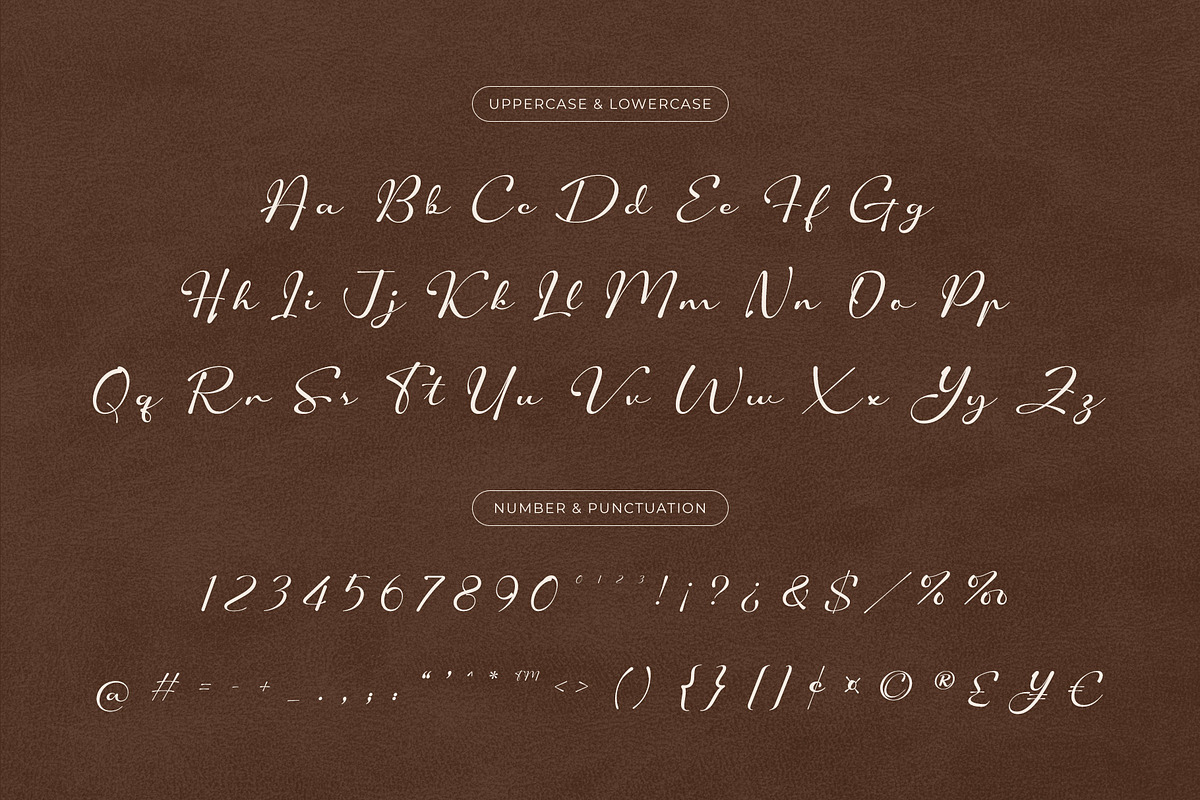 UPPERCASE & LOWERCASE
Aa Bb Cc Dd Ee Ff Gg
Hh Ii Jj Kk Ll Mm Nn Oo Pp
Qq Rr Ss Tt Uu Vv Ww Xx Yy Zz
NUMBER & PUNCTUATION
1234567890 ⁰ ¹ ² ³ ! ¡ ? ¿ & $ / % ‰
@ # = - + _ . , ; : “ ’ ^ * ™ < > ( ) { } [ ] ¢ ¤ © ® £ ¥ €